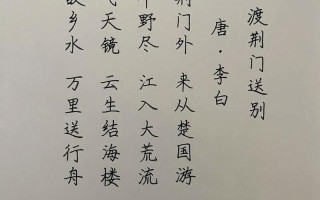 渡荆门送别
唐·李白
荆门外 来从楚国游
野尽 江入大荒流
天镜 云生结海楼
乡水 万里送行舟